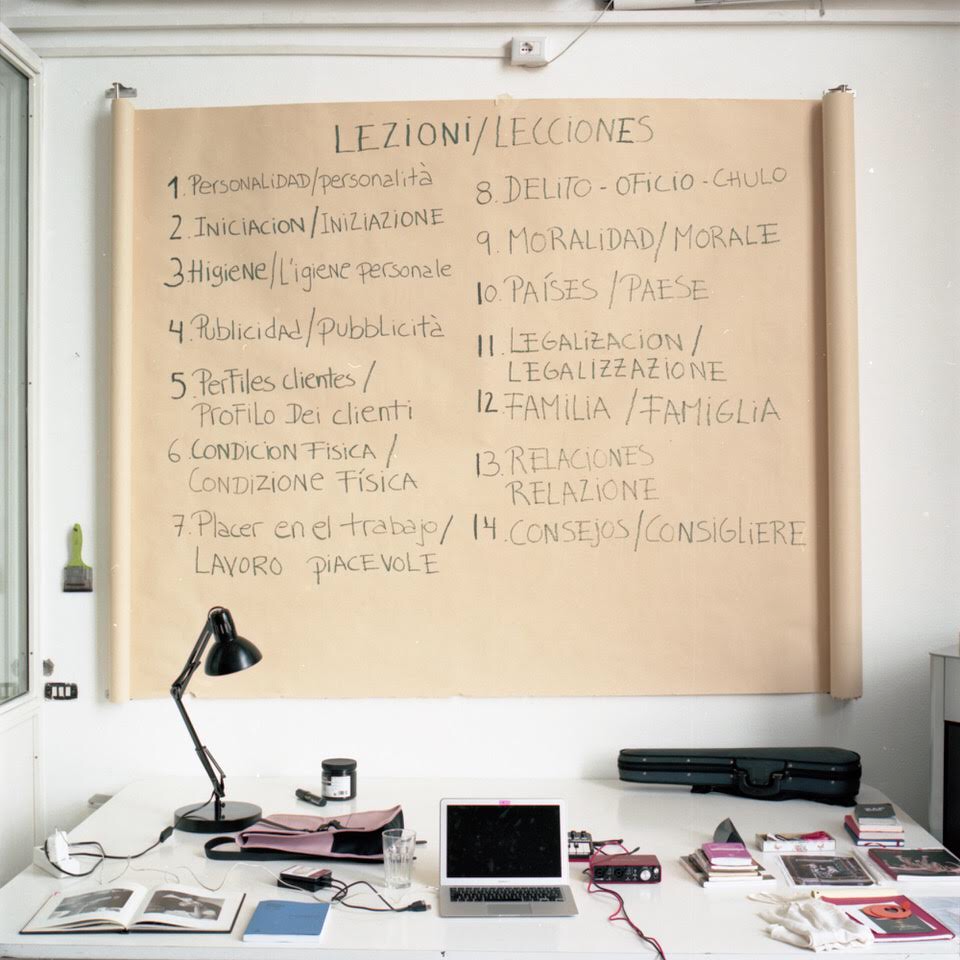 LEZIONI/LECCIONES
1. PERSONALIDAD/personalità
2. INICIACION/INIZIAZIONE
3. Higiene/L'igiene personale
4. Publicidad/pubblicità
5. Perfiles clientes/
PROFILO Dei clienti
6. CONDICION FISICA/
CONDIZIONE FÍSICA
7. Placer en el trabajo/
LAVORO PIACEVOLE
8. DELITO - OFICIO - CHULO
9. MORALIDAD/MORALE
10. PAÍSES/PAESE
11. LEGALIZACION/
LEGALIZZAZIONE
12. FAMILIA/FAMIGLIA
13. RELACIONES
RELAZIONE
14. CONSEJOS/CONSIGLIERE